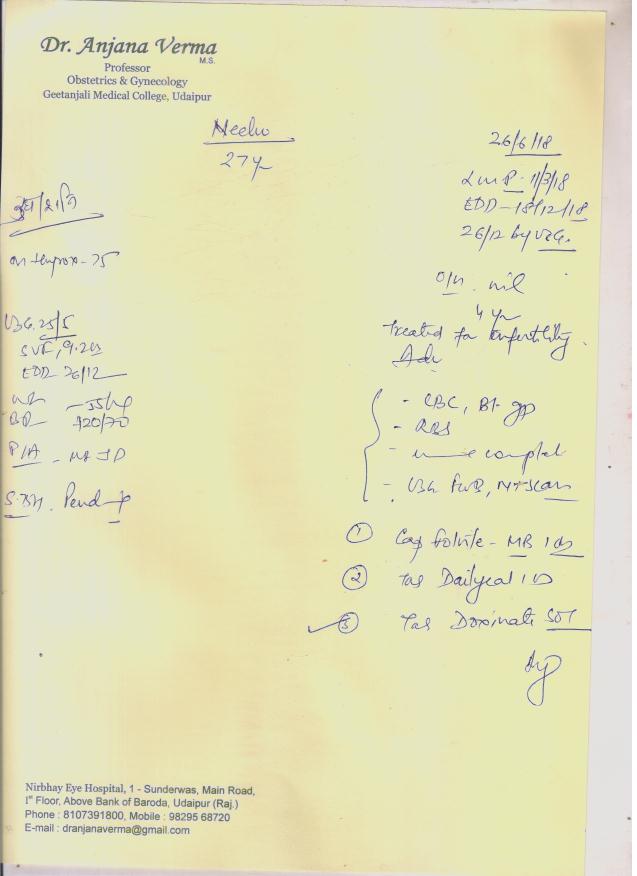 Dr. Anjana Verma
M.S.
Professor
Obstetrics & Gynecology
Geetanjali Medical College, Udaipur
27 yr
26/6/18
LMP- 1/3/18
EDD-18/12/18
26/12 by USG.
on thyrox-75
O/H. nil
4 yr
Treated for Infertility.
Adv
USG. 25/5
SVF, 9.2
EDD 26/12
BP 120/70
P/A
S.TSH. Pending
- CBC, Bl. gp
- RBS
- urine complete
- USG FWB, NT Scan
① Cap Folvite-MB 1 OD
② Tab Dailycal 1 OD
③ Tab Doxinate SOS
Nirbhay Eye Hospital, 1 - Sunderwas, Main Road,
1st Floor, Above Bank of Baroda, Udaipur (Raj.)
Phone : 8107391800, Mobile : 98295 68720
E-mail : dranjanaverma@gmail.com